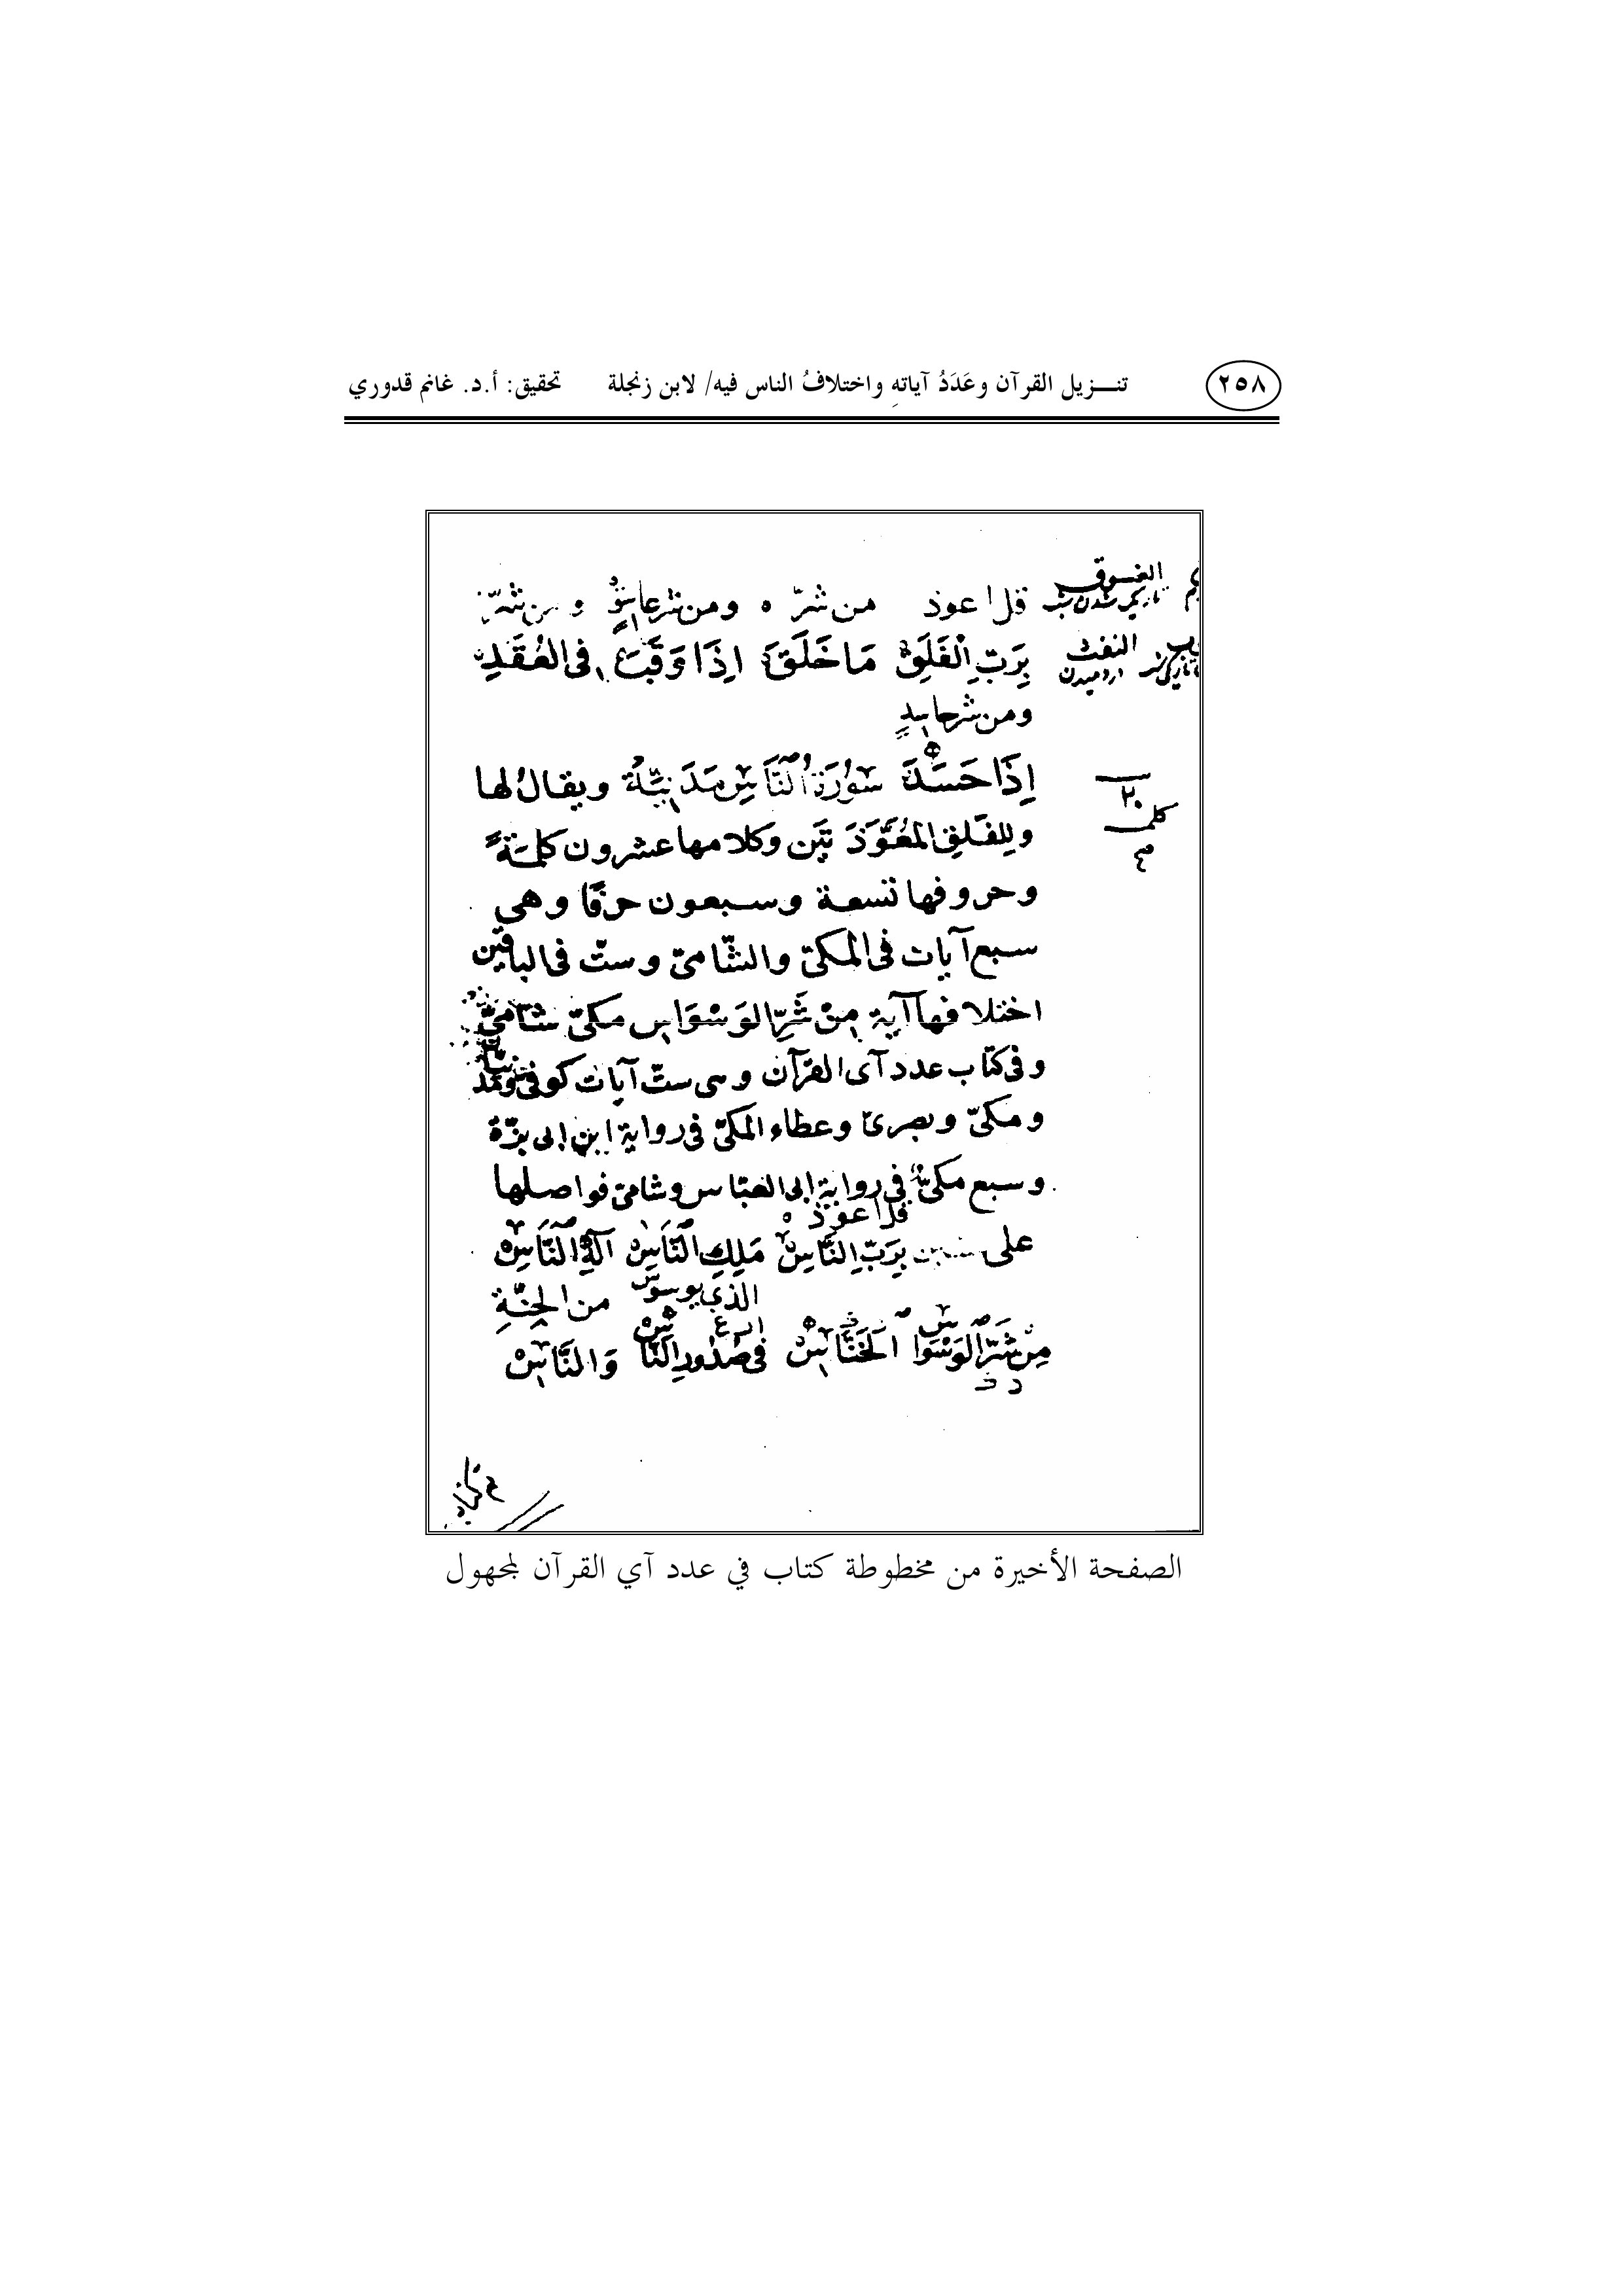 ٢٥٨
تنـزيل القرآن وعَدَدُ آياتهِ واختلافُ الناس فيه/ لابن زنجلة تحقيق: أ.د. غانم قدوري
قل اعوذ من شرّ ه ومن شر غاسق و من شرّ
بِرَبِّ الْفَلَقِ مَا خَلَقَ اِذَا وَقَبَ فى العُقَدِ
النفث
ومن شر حاسدٍ
إِذَا حَسَدَ سُورَةُ النَّاسِ مَدَنِيَّةٌ ويقالُ لها
٢٠
وللفَلَقِ المُعَّوَذَتَيَن وكلامها عشرون كلمَةً
وحروفها تسعة وسبعون حرفًا وهي
سبع آيات فى المكىّ والشّامىّ وستّ فى الباقين
اختلافها آية مِنْ شَرِّ الوَسْوَاسِ مكىّ شامىّ
وفى كتاب عدد آى القرآن وهى ستّ آيات كوفى
ومكىّ وبصرىّ وعطاء المكىّ فى رواية ابن ابى بزّة
وسبع مكىٌّ فى رواية ابى العبّاس وشامىّ فواصلها
قل اعوذ
على بِرَبِّ النَّاسِ مَلِكِ النَّاسِ اله النَّاسِ
الذي يوسوس من الجِنَّةِ
مِنْ شَرِّ الوَسْوَاس الخَنَّاسِ فى صُدُورِ النَّاسِ وَالنَّاسِ
الصفحة الأخيرة من مخطوطة كتاب في عدد آي القرآن لمجهول